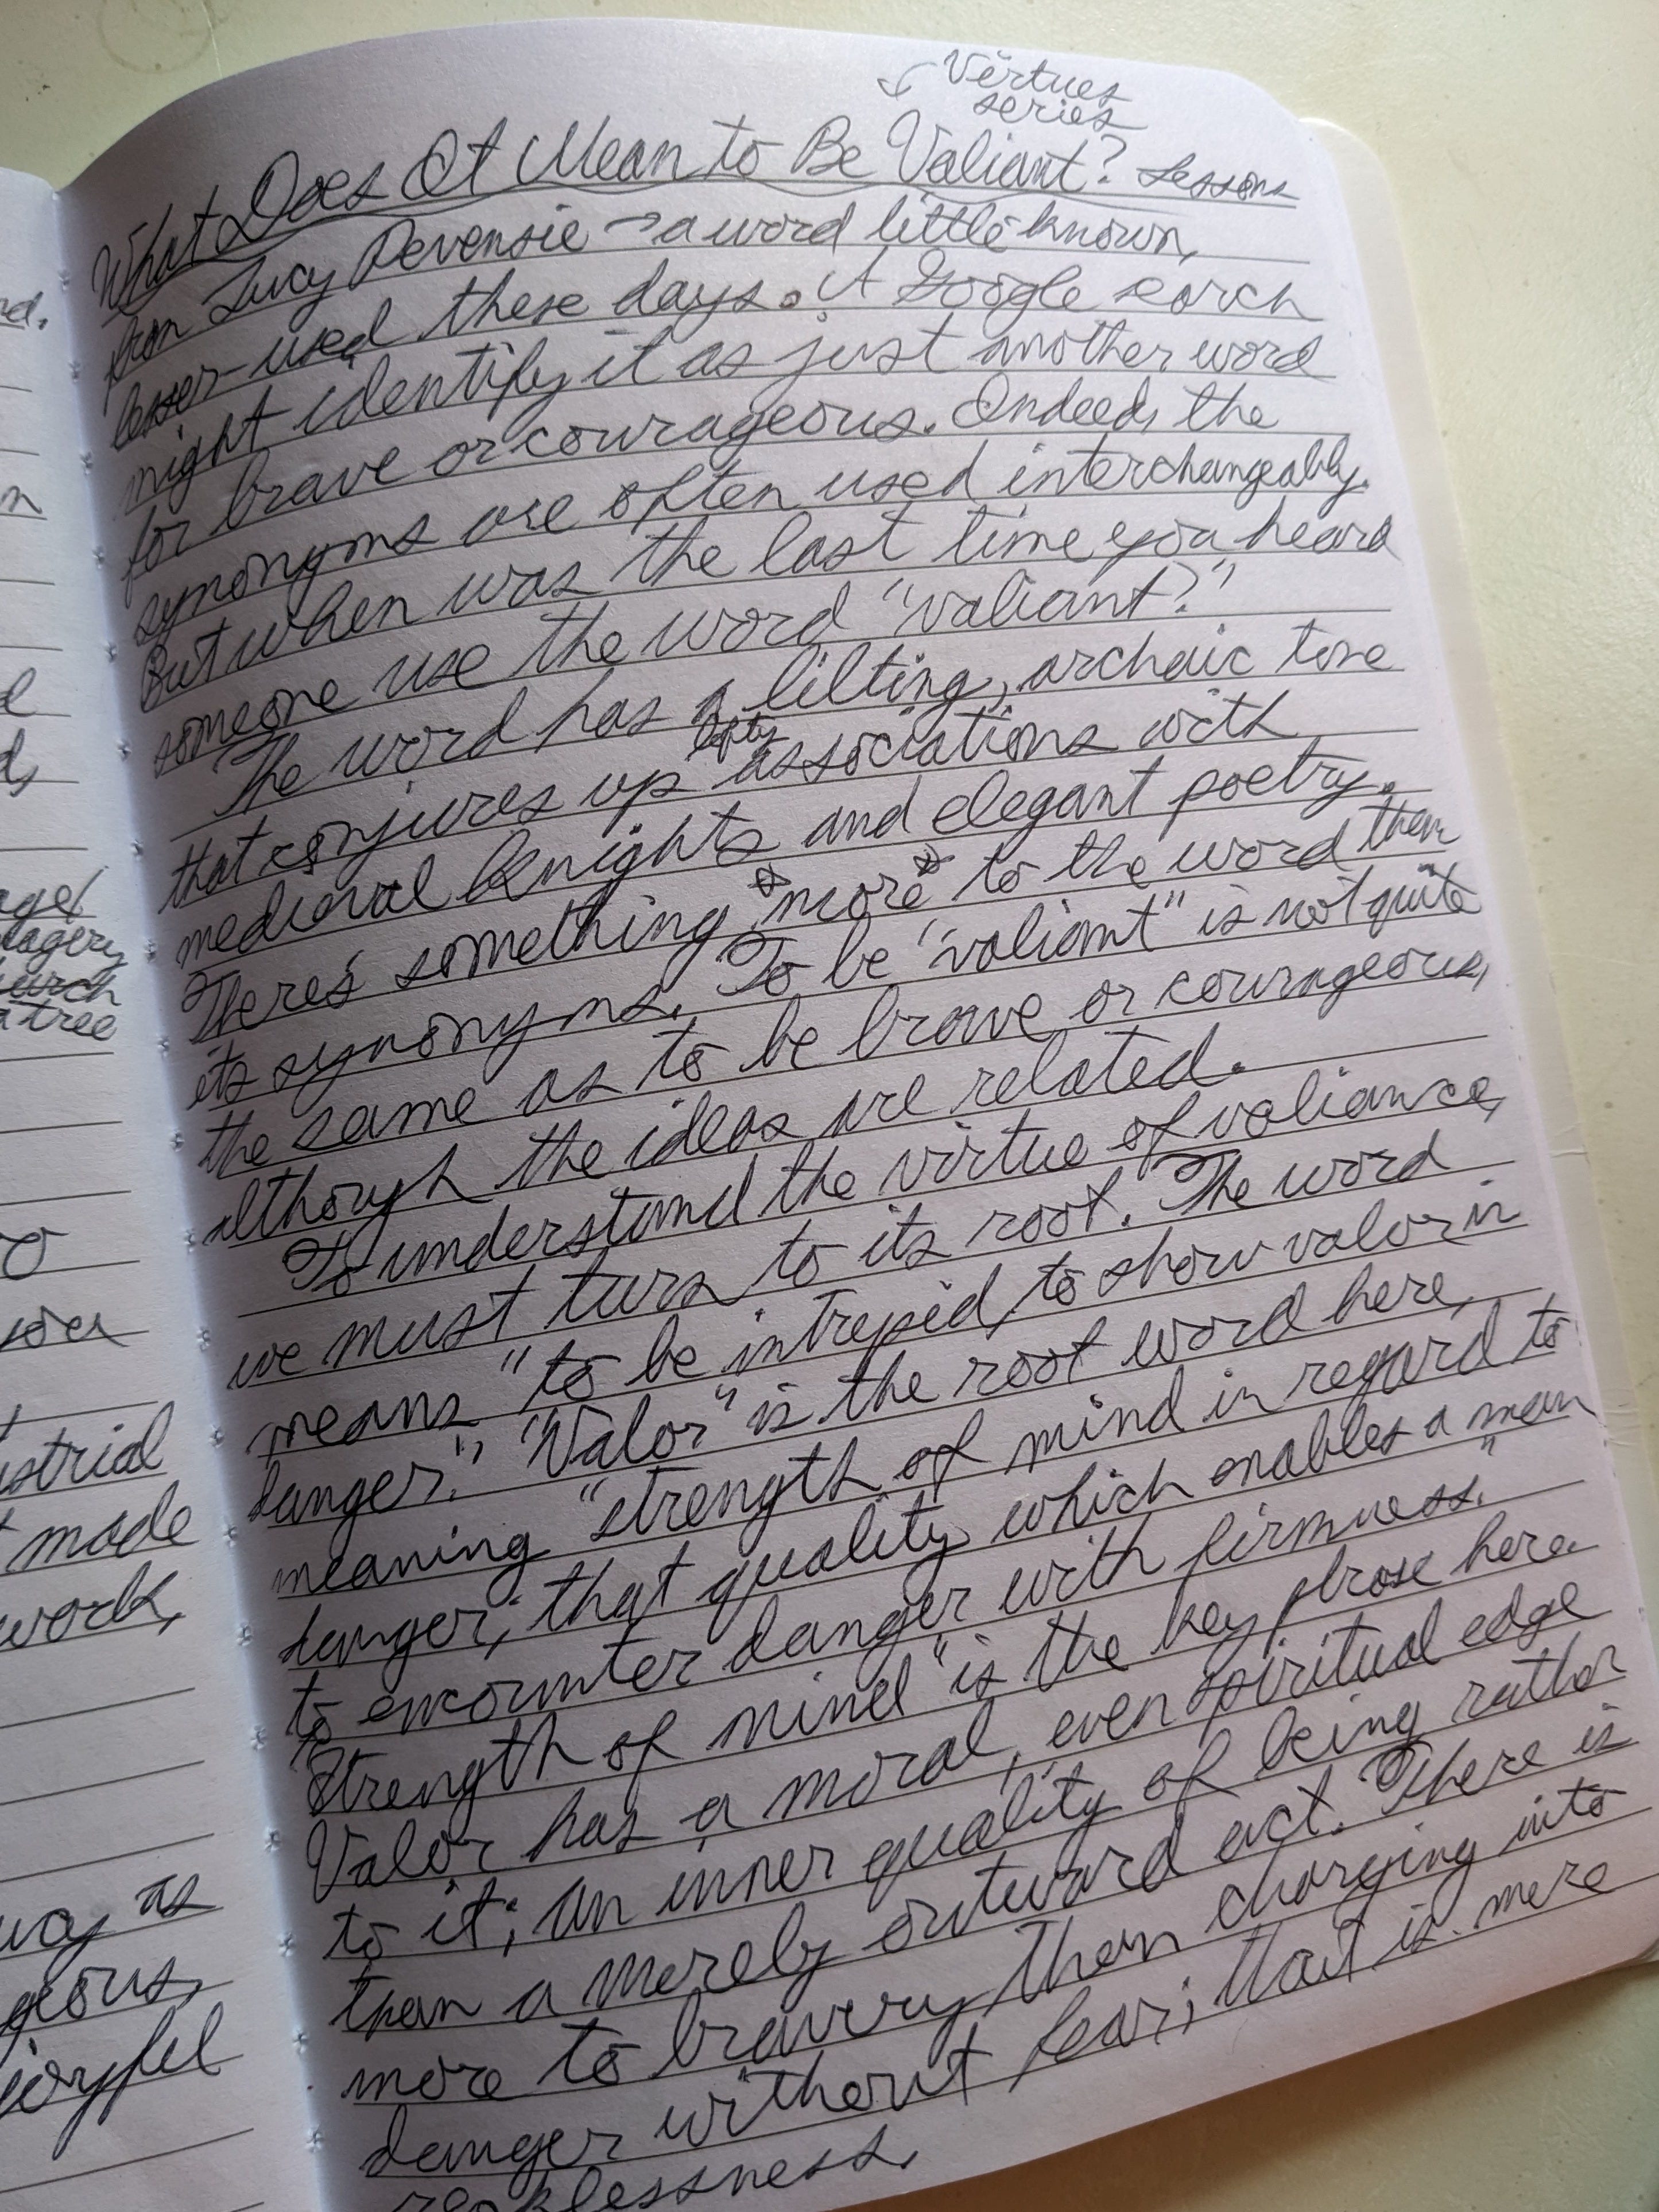 Virtues
series
What Does It Mean to Be Valiant? Lessons
from Lucy Pevensie → a word little-known,
lesser-used these days. A Google search
might identify it as just another word
for brave or courageous. Indeed, the
synonyms are often used interchangeably.
But when was the last time you heard
someone use the word "valiant?"
The word has a lilting, archaic tone
that conjures up lofty associations with
medieval knights and elegant poetry.
There's something *more* to the word than
its synonyms. To be "valiant" is not quite
the same as to be brave or courageous,
although the ideas are related.
To understand the virtue of valiance,
we must turn to its root. The word
means "to be intrepid, to show valor in
danger." "Valor" is the root word here,
meaning "strength of mind in regard to
danger; that quality which enables a man
to encounter danger with firmness."
"Strength of mind" is the key phrase here.
Valor has a moral, even spiritual edge
to it; an inner quality of being rather
than a merely outward act. There is
more to bravery than charging into
danger without fear; that is mere
recklessness.
rd.
n
d,
agery
church
a tree
you
made
work,
as
joyful